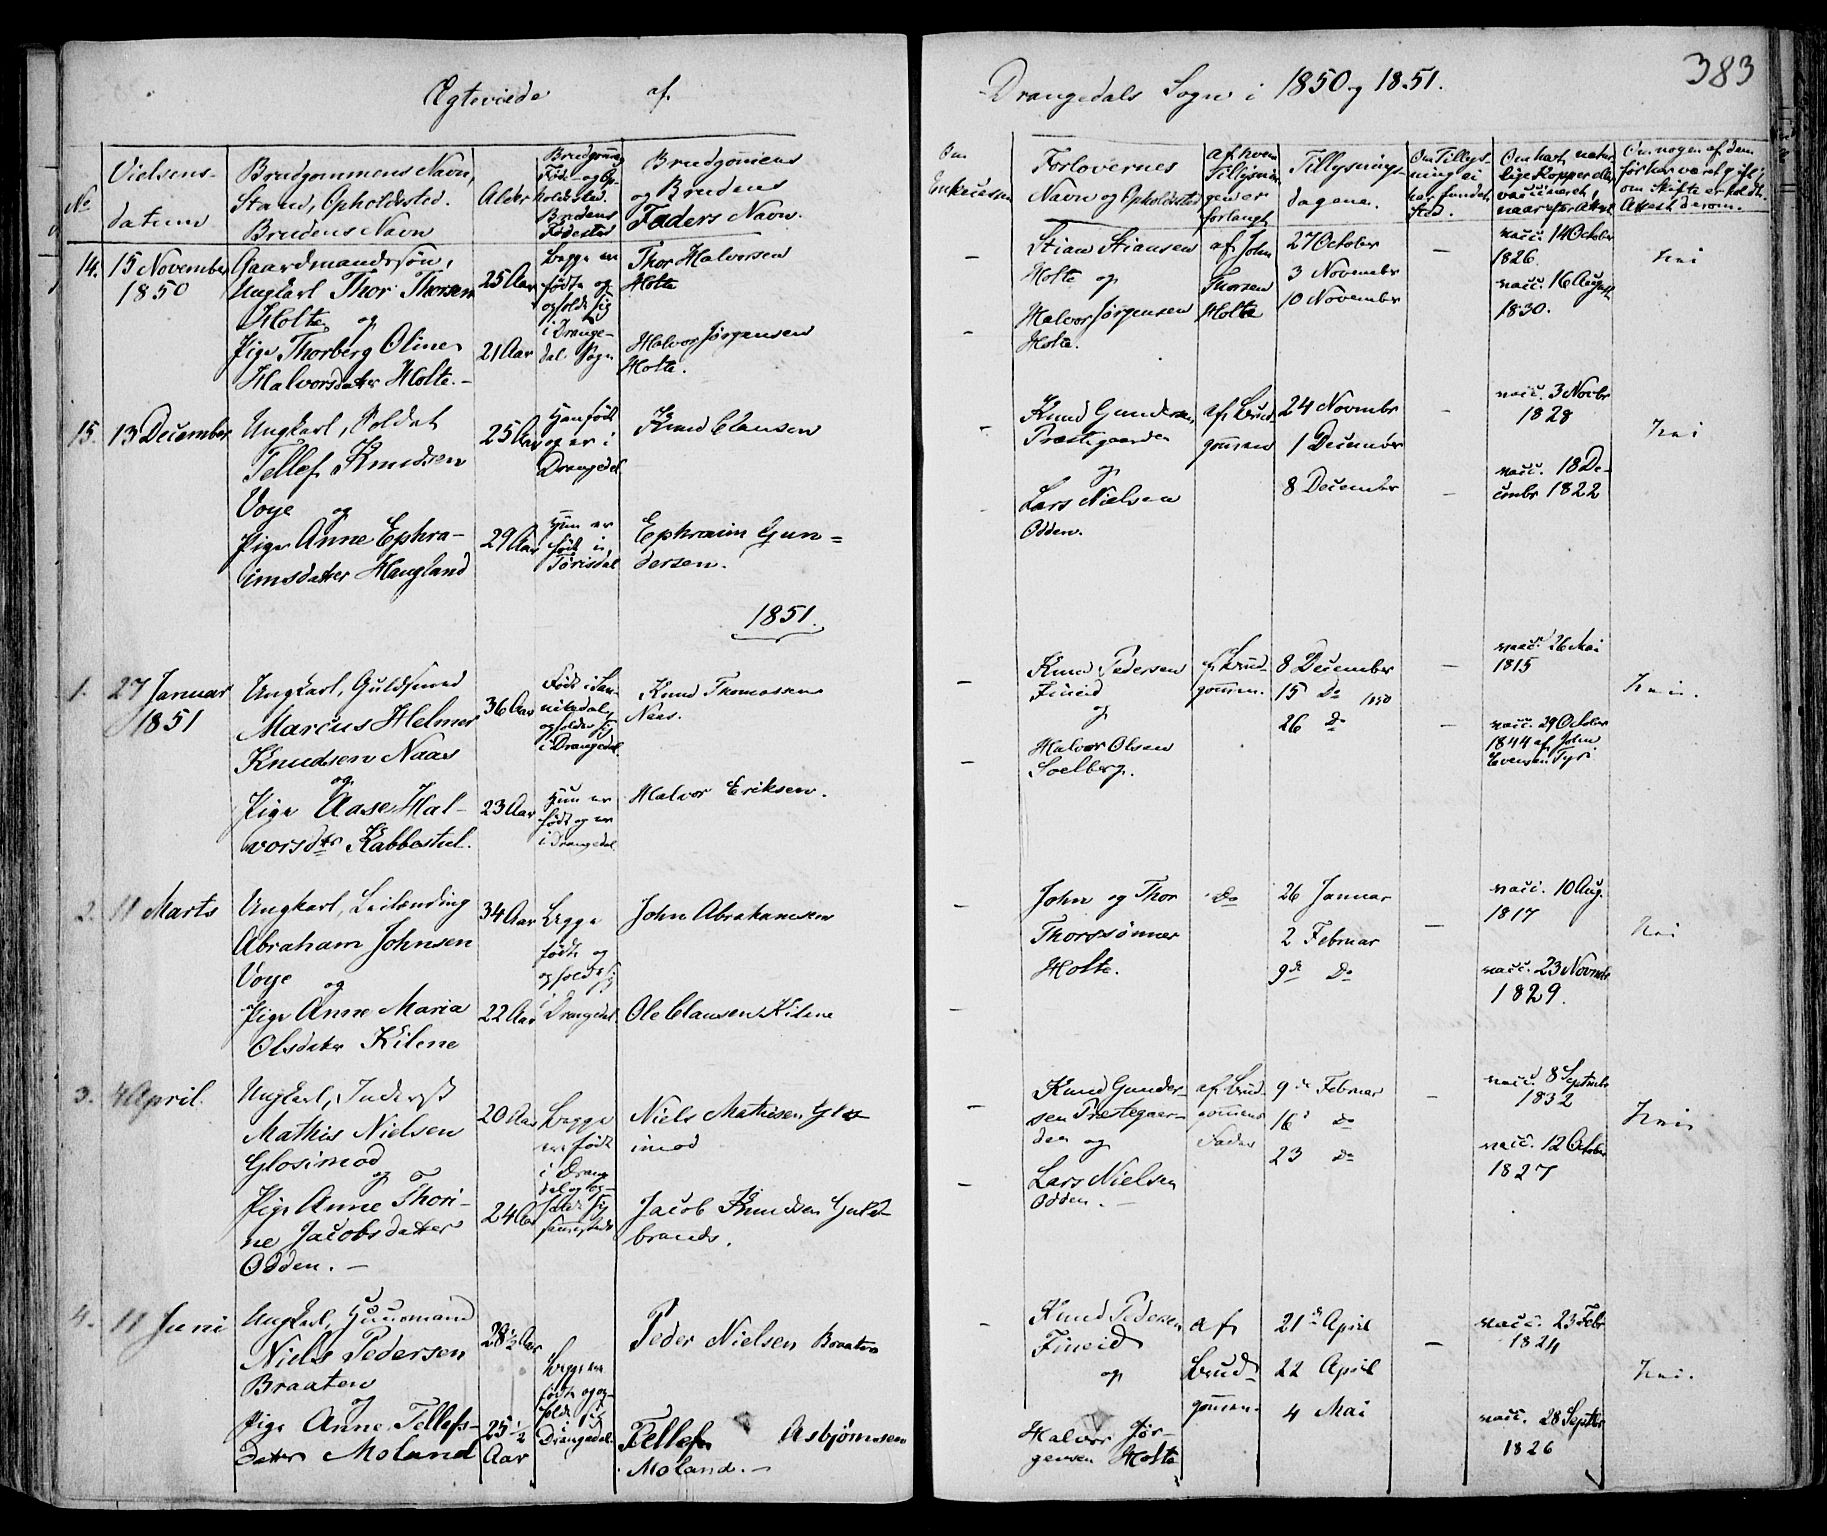 383
Ægteviede af
Drangedals Sogn i 1850 og 1851.
No
Vielsens-
datum
Brudgommens Navn,
Stand, Opholdsted.
Brudens Navn
Alder
Brudgomens
Føde- og Op-
holdssted.
Brudens
Fødested
Brudgomens
og Brudens
Faders Navn.
Om
Enkricesson
Forlovernes
Navn og Opholdsted
af hvem
Tillysnin
gen er
forlangt
Tillysnings-
dagene.
Om Tillys-
ning ei
har fundet
Sted.
Om havt natur
lige Kopper eller
vaccineret,
naar efter Attest
Om nogen af dem
før har været gift;
om Skifte er holdt.
Attest derom.
14. 15 November
1850
Gaardmandssøn,
Ungkarl Thor Thorsen
Holte og
Pige Thorberg Oline
Halvorsdatter Holte. -
25 Aar
21 Aar
Begge er
fødte og
opholde sig
i Drange-
dal Sogn
Thor Halvorsen
Holte
Halvor Jørgensen
Holte.
-
-
Stian Stiansen
Holte og
Halvor Jørgensen
Holte.
af John
Thorsen
Holte
27 October
3 November
10 November
-
vacc. 14 October
1826.
vacc. 16 August
1830.
Nei
15. 13 December
Ungkarl, Soldat
Tellef Knudsen
Voje og
Pige Anne Ephra-
imsdatter Haugland
25 Aar
29 Aar
Han født
og er i
Drangedal
Hun er
født i
Tørisdal
Knud Clausen
Ephraim Gun=
dersen.
-
Knud Gundersen
Præstegaarden
og
Lars Nielsen
Odden.
af Brud
gommen
24 Novembr
1 December
8 December
-
-
vacc. 3 Novbr
1828
vacc. 18 De-
cembr 1822
Nei
1851.
1. 27 Januar
1851
Ungkarl, Guldsmed
Marcus Helmer
Knudsen Naas
og
Pige Aase Hal-
vorsdtr Kabbestul.
36 Aar
23 Aar
Født i San-
nikedal,
opholder sig
i Drangedal
Hun er
født og er
i Drangedal
Knud Thomassen
Naas.
Halvor Eriksen.
-
-
Knud Pedersen
Fineid
og
Halvor Olsen
Soelberg.
af Brud-
gommen.
8 December
15 Do 1850
26 Do
-
-
vacc. 26 Mai
1815
vacc. 29 October
1844 af John
Evensen Tyri
Nei.
2. 11 Marts
Ungkarl, Leilænding
Abraham Johnsen
Voje og
Pige Anne Maria
Olsdatter Kilene
34 Aar
22 Aar
Begge
fødte og
opholde sig
i Drangedal
John Abrahamsen
Ole Clausen Kilene
-
-
John og Thor
Thorssønner
Holte.
Do
26 Januar
2 Februar
9de Do
-
vacc. 10 Aug.
1817
vacc. 23 Novmbr
1829.
Nei
3. 4 April.
Ungkarl, Inderst
Mathis Nielsen
Glosimod
og
Pige Anne Thori-
ne Jacobsdatter
Odden. -
20 Aar
24 Aar
Begge
ere født
i Drange
dal og op-
holde sig
sammesteds
Niels Mathisen Glos
imod
Jacob Knudsen Guld-
brands.
-
-
Knud Gunder-
sen Præstegaar-
den og
Lars Nielsen
Odden. -
af Brud
gommens
Fader
9de Februar
16 Do
23 Do
-
vacc. 8 Septmbr
1832
vacc. 12 October
1827
Nei
4. 11 Juni
Ungkarl, Huusmand
Niels Pedersen
Braaten
og
Pige Anne Tellefs-
datter Moland
28½ Aar
25½
Aar
Begge ere
fødte og op-
holde sig i
Drangedal
Peder Nielsen Braaten
Tellef Asbjørnsen
Moland. -
-
Knud Pedersen
Fineid
og
Halvor Jør-
gensen Holte
af
Brud-
gommen.
21de April
22 April
4 Mai
-
vacc. 23 Febr
1824
vacc. 28 Septbr
1826
Nei.